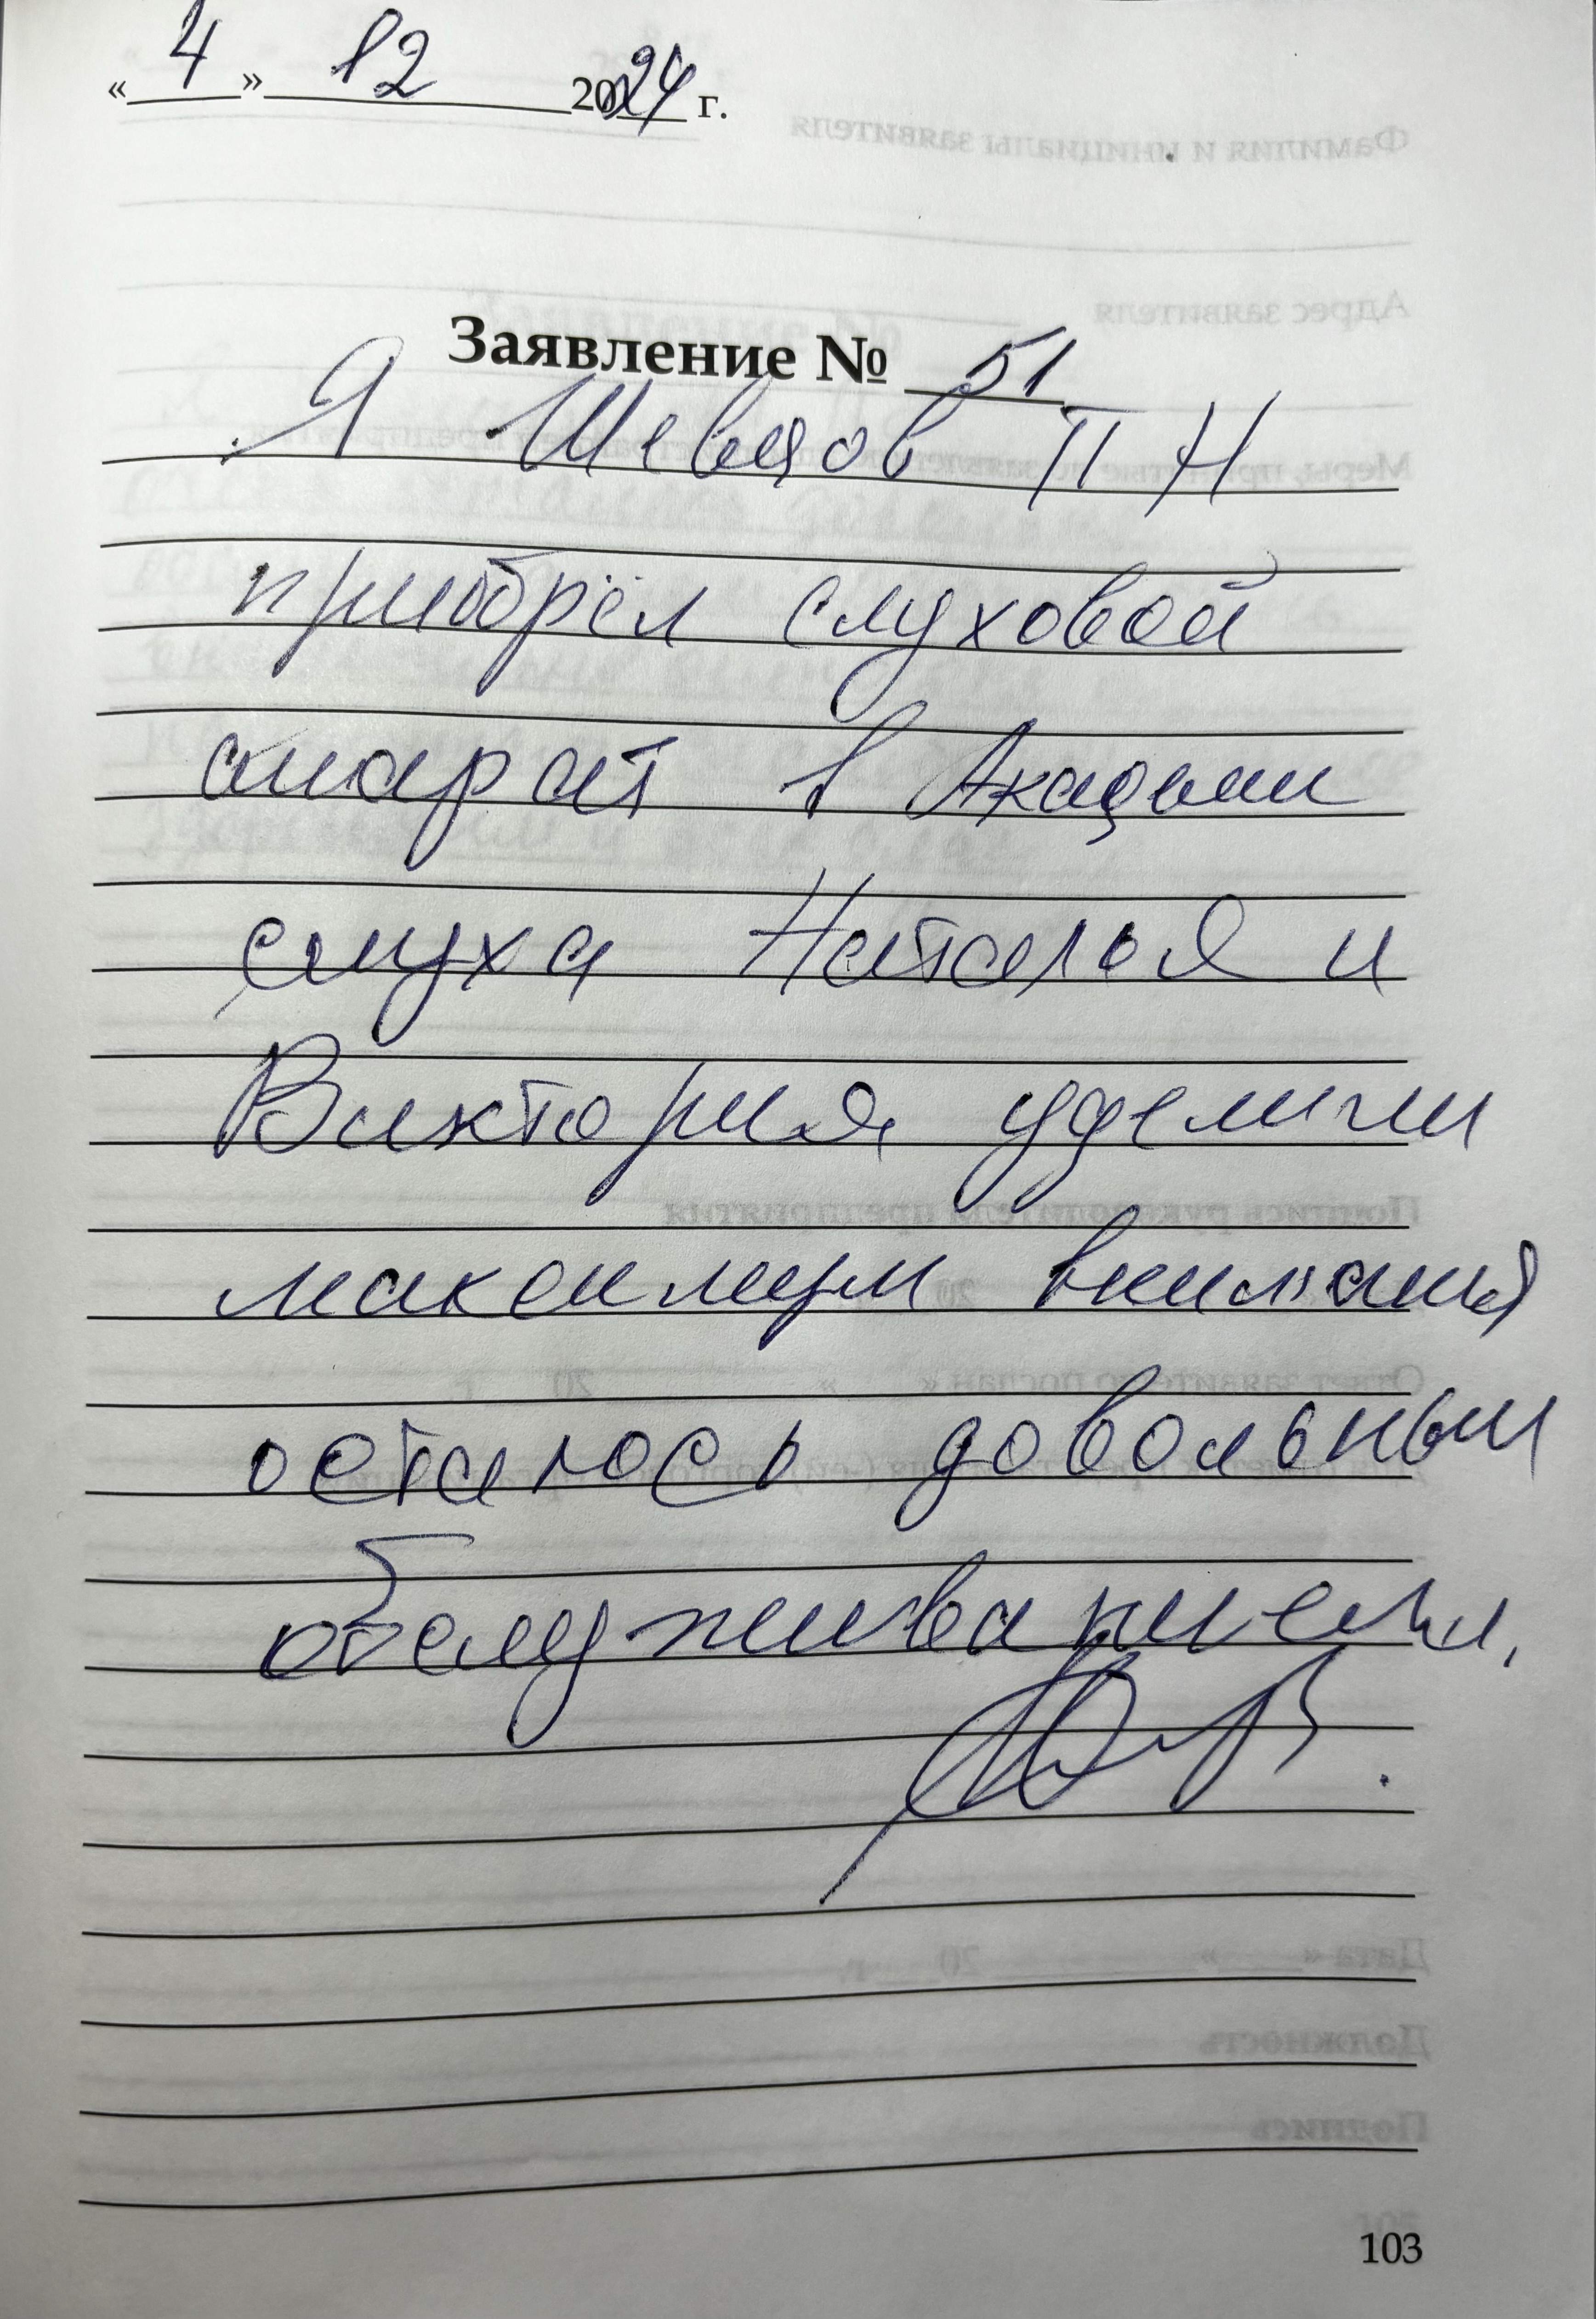 « 4 » 12 2024 г.
Заявление № 51
Я Шевцов П Н
приобрёл слуховой
апарат в Академии
слуха Наталья и
Виктория уделили
максимум внимания
осталось довольным
обслуживанием.
103